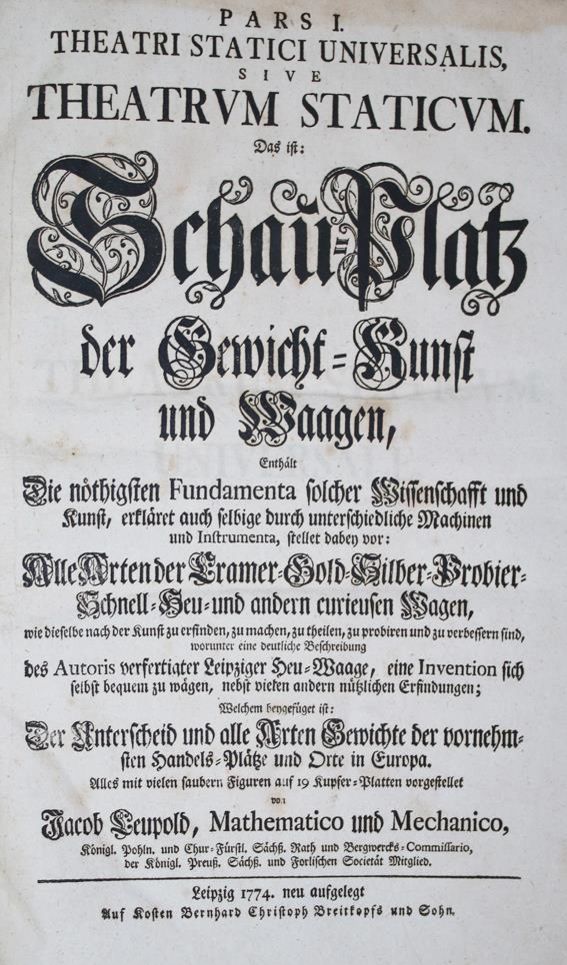 PARS I.
THEATRI STATICI UNIVERSALIS,
SIVE
THEATRVM STATICVM.
Das ist:
Schau-Platz
der Gewicht-Kunst
und Waagen,
Enthält
Die nöthigsten Fundamenta solcher Wissenschafft und
Kunst, erkläret auch selbige durch unterschiedliche Machinen
und Instrumenta, stellet dabey vor:
Alle Arten der Cramer-Gold-Silber-Probier-
Schnell-Heu-und andern curieusen Wagen,
wie dieselbe nach der Kunst zu erfinden, zu machen, zu theilen, zu probiren und zu verbessern sind,
worunter eine deutliche Beschreibung
des Autoris verfertigter Leipziger Heu-Waage, eine Invention sich
selbst bequem zu wägen, nebst vielen andern nützlichen Erfindungen;
Welchem beygefüget ist:
Der Unterscheid und alle Arten Gewichte der vornehm-
sten Handels-Plätze und Orte in Europa.
Alles mit vielen saubern Figuren auf 19 Kupfer-Platten vorgestellet
von
Jacob Leupold, Mathematico und Mechanico,
Königl. Pohln. und Chur-Fürstl. Sächß. Rath und Bergwercks-Commissario,
der Königl. Preuß. Sächß. und Forlischen Societät Mitglied.
Leipzig 1774. neu aufgelegt
Auf Kosten Bernhard Christoph Breitkopfs und Sohn.